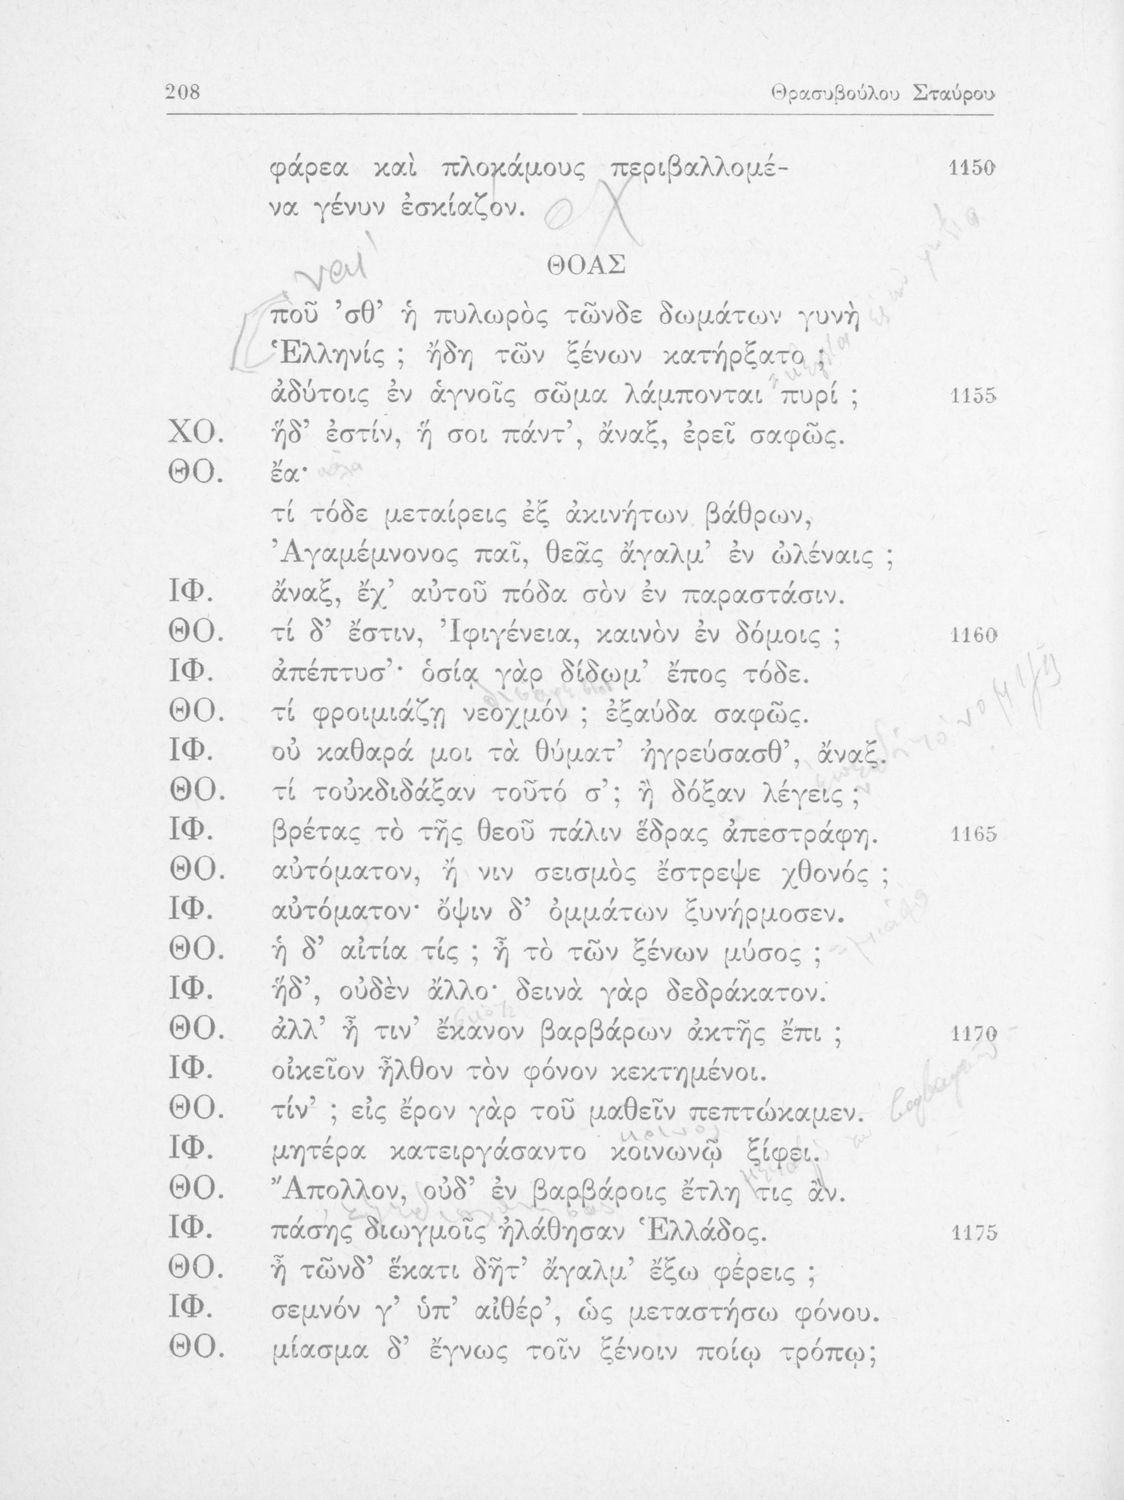 208 Θρασυβούλου Σταύρου
φάρεα καὶ πλοκάμους περιβαλλομέ- 1150
να γένυν ἐσκίαζον.
ναι
ΘΟΑΣ
ποῦ 'σθ' ἡ πυλωρὸς τῶνδε δωμάτων γυνὴ
Ἑλληνίς ; ἤδη τῶν ξένων κατήρξατο ;
ἀδύτοις ἐν ἁγνοῖς σῶμα λάμπονται πυρί ; 1155
ΧΟ. ἥδ' ἐστίν, ἥ σοι πάντ', ἄναξ, ἐρεῖ σαφῶς.
ΘΟ. ἔα·
τί τόδε μεταίρεις ἐξ ἀκινήτων βάθρων,
Ἀγαμέμνονος παῖ, θεᾶς ἄγαλμ' ἐν ὠλέναις ;
ΙΦ. ἄναξ, ἔχ' αὐτοῦ πόδα σὸν ἐν παραστάσιν.
ΘΟ. τί δ' ἔστιν, Ἰφιγένεια, καινὸν ἐν δόμοις ; 1160
ΙΦ. ἀπέπτυσ'· ὁσίᾳ γὰρ δίδωμ' ἔπος τόδε.
ΘΟ. τί φροιμιάζῃ νεοχμόν ; ἐξαύδα σαφῶς.
ΙΦ. οὐ καθαρά μοι τὰ θύματ' ἠγρεύσασθ', ἄναξ.
ΘΟ. τί τοὐκδιδάξαν τοῦτό σ'; ἢ δόξαν λέγεις ;
ΙΦ. βρέτας τὸ τῆς θεοῦ πάλιν ἕδρας ἀπεστράφη. 1165
ΘΟ. αὐτόματον, ἤ νιν σεισμὸς ἔστρεψε χθονός ;
ΙΦ. αὐτόματον· ὄψιν δ' ὀμμάτων ξυνήρμοσεν.
ΘΟ. ἡ δ' αἰτία τίς ; ἦ τὸ τῶν ξένων μύσος ;
ΙΦ. ἥδ', οὐδὲν ἄλλο· δεινὰ γὰρ δεδράκατον.
ΘΟ. ἀλλ' ἦ τιν' ἔκανον βαρβάρων ἀκτῆς ἔπι ; 1170
ΙΦ. οἰκεῖον ἦλθον τὸν φόνον κεκτημένοι.
ΘΟ. τίν' ; εἰς ἔρον γὰρ τοῦ μαθεῖν πεπτώκαμεν.
ΙΦ. μητέρα κατειργάσαντο κοινωνῷ ξίφει.
ΘΟ. Ἄπολλον, οὐδ' ἐν βαρβάροις ἔτλη τις ἄν.
ΙΦ. πάσης διωγμοῖς ἠλάθησαν Ἑλλάδος. 1175
ΘΟ. ἦ τῶνδ' ἕκατι δῆτ' ἄγαλμ' ἔξω φέρεις ;
ΙΦ. σεμνόν γ' ὑπ' αἰθέρ', ὡς μεταστήσω φόνου.
ΘΟ. μίασμα δ' ἔγνως τοῖν ξένοιν ποίῳ τρόπῳ;